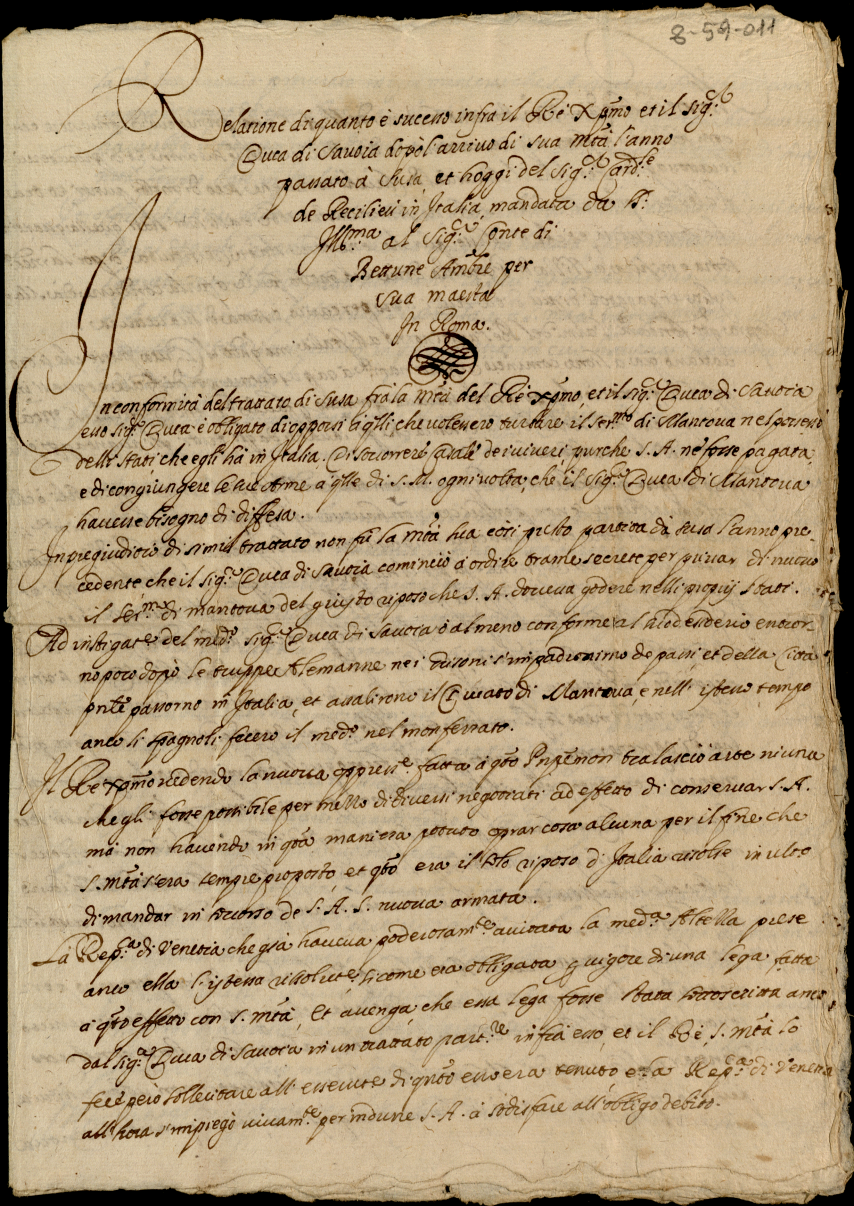 8-59-011
Relatione di quanto è successo infra il Re Xp̃mo et il Sig.r
Duca di Savoia dopò l'arrivo di sua Mtà l'anno
passato à Susa, et hoggi del Sig.r Card.le
de Recilieù in Italia, mandata da S.
Ill.ma al Sig.r Conte di
Bettune Amb.re per
sua maestà
In Roma.
In conformità del trattato di Susa frà la Mtà del Rè Xp̃mo, et il sig.r Duca di Savoia
esso sig.r Duca è obligato di opporsi à q̃lli che volessero turbare il Ser.mo di Mantova nel possesso
delli stati che egli hà in Italia. Di soccorrere Casale de viveri purche S. A. ne fosse pagata,
e di congiungere le sue Arme à q̃lle di S. M. ogni volta, che il Sig.r Duca di Mantova
havesse bisogno di diffesa.
In pregiuditio di simil trattato non fù la Mtà sua così presto partita da Susa l'anno pre-
cedente che il sig.r Duca di Savoia cominciò à ordire trame secrete per privar di nuovo
il Ser.mo di Mantova del giusto riposo che S. A. doveva godere nelli proprij stati.
Ad instigat.e del med.o sig.r Duca di Savoia ò almeno conforme al suo desiderio entror-
no poco dopò le truppe Alemanne nei Grisoni s'impadronirno de passi, et della Città
passorno in Italia, et assalirono il Ducato di Mantova, e nell'istesso tempo
anco li spagnoli fecero il med.o nel monferrato.
Il Re Xp̃mo vedendo la nuova oppress.e fatta à q̃sto Pñpe non tralasciò arte niuna
che gli fosse possibile per mezzo di diversi negotiati ad effetto di conservar S. A.
mà non havendo in q̃sta maniera potuto oprar cosa alcuna per il fine che
S. Mtà s'era sempre proposto, et q̃sto era il solo riposo d'Italia risolse in ult.o
di mandar in soccorso de S. A. S. nuova armata.
La Rep.ca di Venetia che già haveva poderosam.te aiutata la med.a Altezza prese
anco ella l'istessa risolut.e, sì come era obligata p vigore di una lega fatta
à q̃sto effetto con S. Mtà, Et avenga che essa lega fosse stata sottoscritta anco
dal sig.r Duca di Savoia in un trattato part.re infrà esso, et il Rè, S. Mtà lo
fece però sollecitare all'essecut.e di q̃nto esso era tenuto e la Rep.ca di Venetia
all'hora s'impiegò vivam.te per indurre S. A. à sodisfare all'obligo debito.